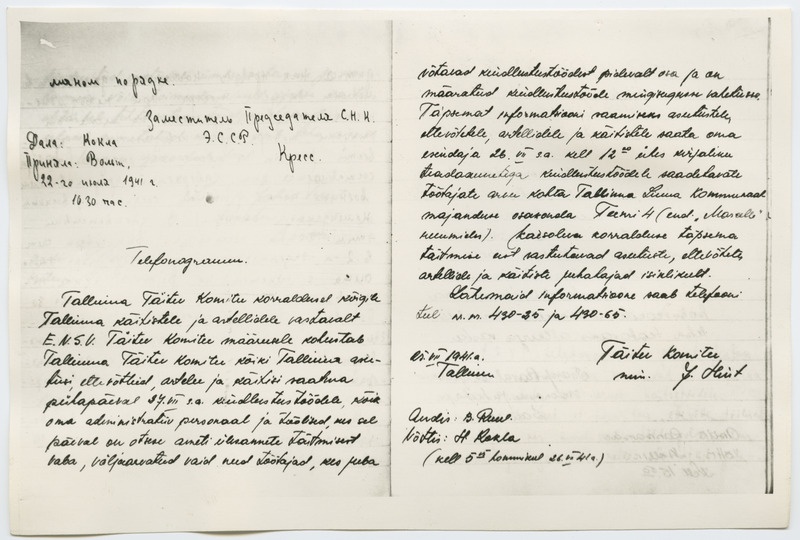 маном порядке.
Заместитель Председателя С.Н.К.
Э.С.С.Р.
Кресс.
Дала: Кокла
Принял: Волт.
22-го июля 1941 г.
16 30 час.
Telefonogramm.
Tallinna Täitev Komitee korraldusel kõigile
Tallinna käitistele ja artellidele vastavalt
E.N.S.V. Täitev Komitee määrusele kohustab
Tallinna Täitev Komitee kõiki Tallinna asu-
tusi, ettevõtteid, artelle ja käitisi saatma
pühapäeval 27.VII s.a. kindlustustöödele, kõik
oma administratiiv personaal ja töölised, kes sel
päeval on otsese ameti ülesannete täitmisest
vaba, väljaarvatud vaid need töötajad, kes juba
võtavad kindlustustöödest pidevalt osa ja on
määratud kindlustustööde mingisugusse vahetusse.
Täpsemat informatsiooni saamiseks asutustele,
ettevõtetele, artellidele ja käitistele saata oma
esindaja 26.VII s.a. kell 12⁰⁰ ühes kirjaliku
teadaannetega kindlustustöödele saadetavate
töötajate arvu kohta Tallinna Linna Kommunaal
majanduse osakonda Teenri 4 (end. „Marcelle"
ruumides). Käesoleva korralduse täpsema
täitmise eest vastutavad asutuste, ettevõtete,
artellide ja käitiste juhatajad isiklikult.
Lähemaid informatsioone saab telefoni
teel nr. nr. 430-25 ja 430-65.
25 VII 1941.a.
Tallinn
Täitev Komitee
nim. J. Hint
Andis: B. Ruul.
Võttis: H Kokla
(kell 5²⁵ hommikul 26.VII 41.a.)